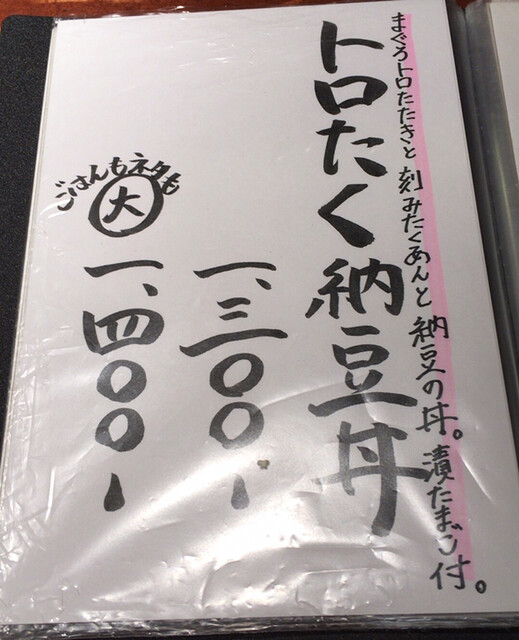 まぐろトロたたきと刻みたくあんと納豆の丼。漬たまご付。
トロたく納豆丼
一、三〇〇-
ごはんもネタも
大
一、四〇〇-